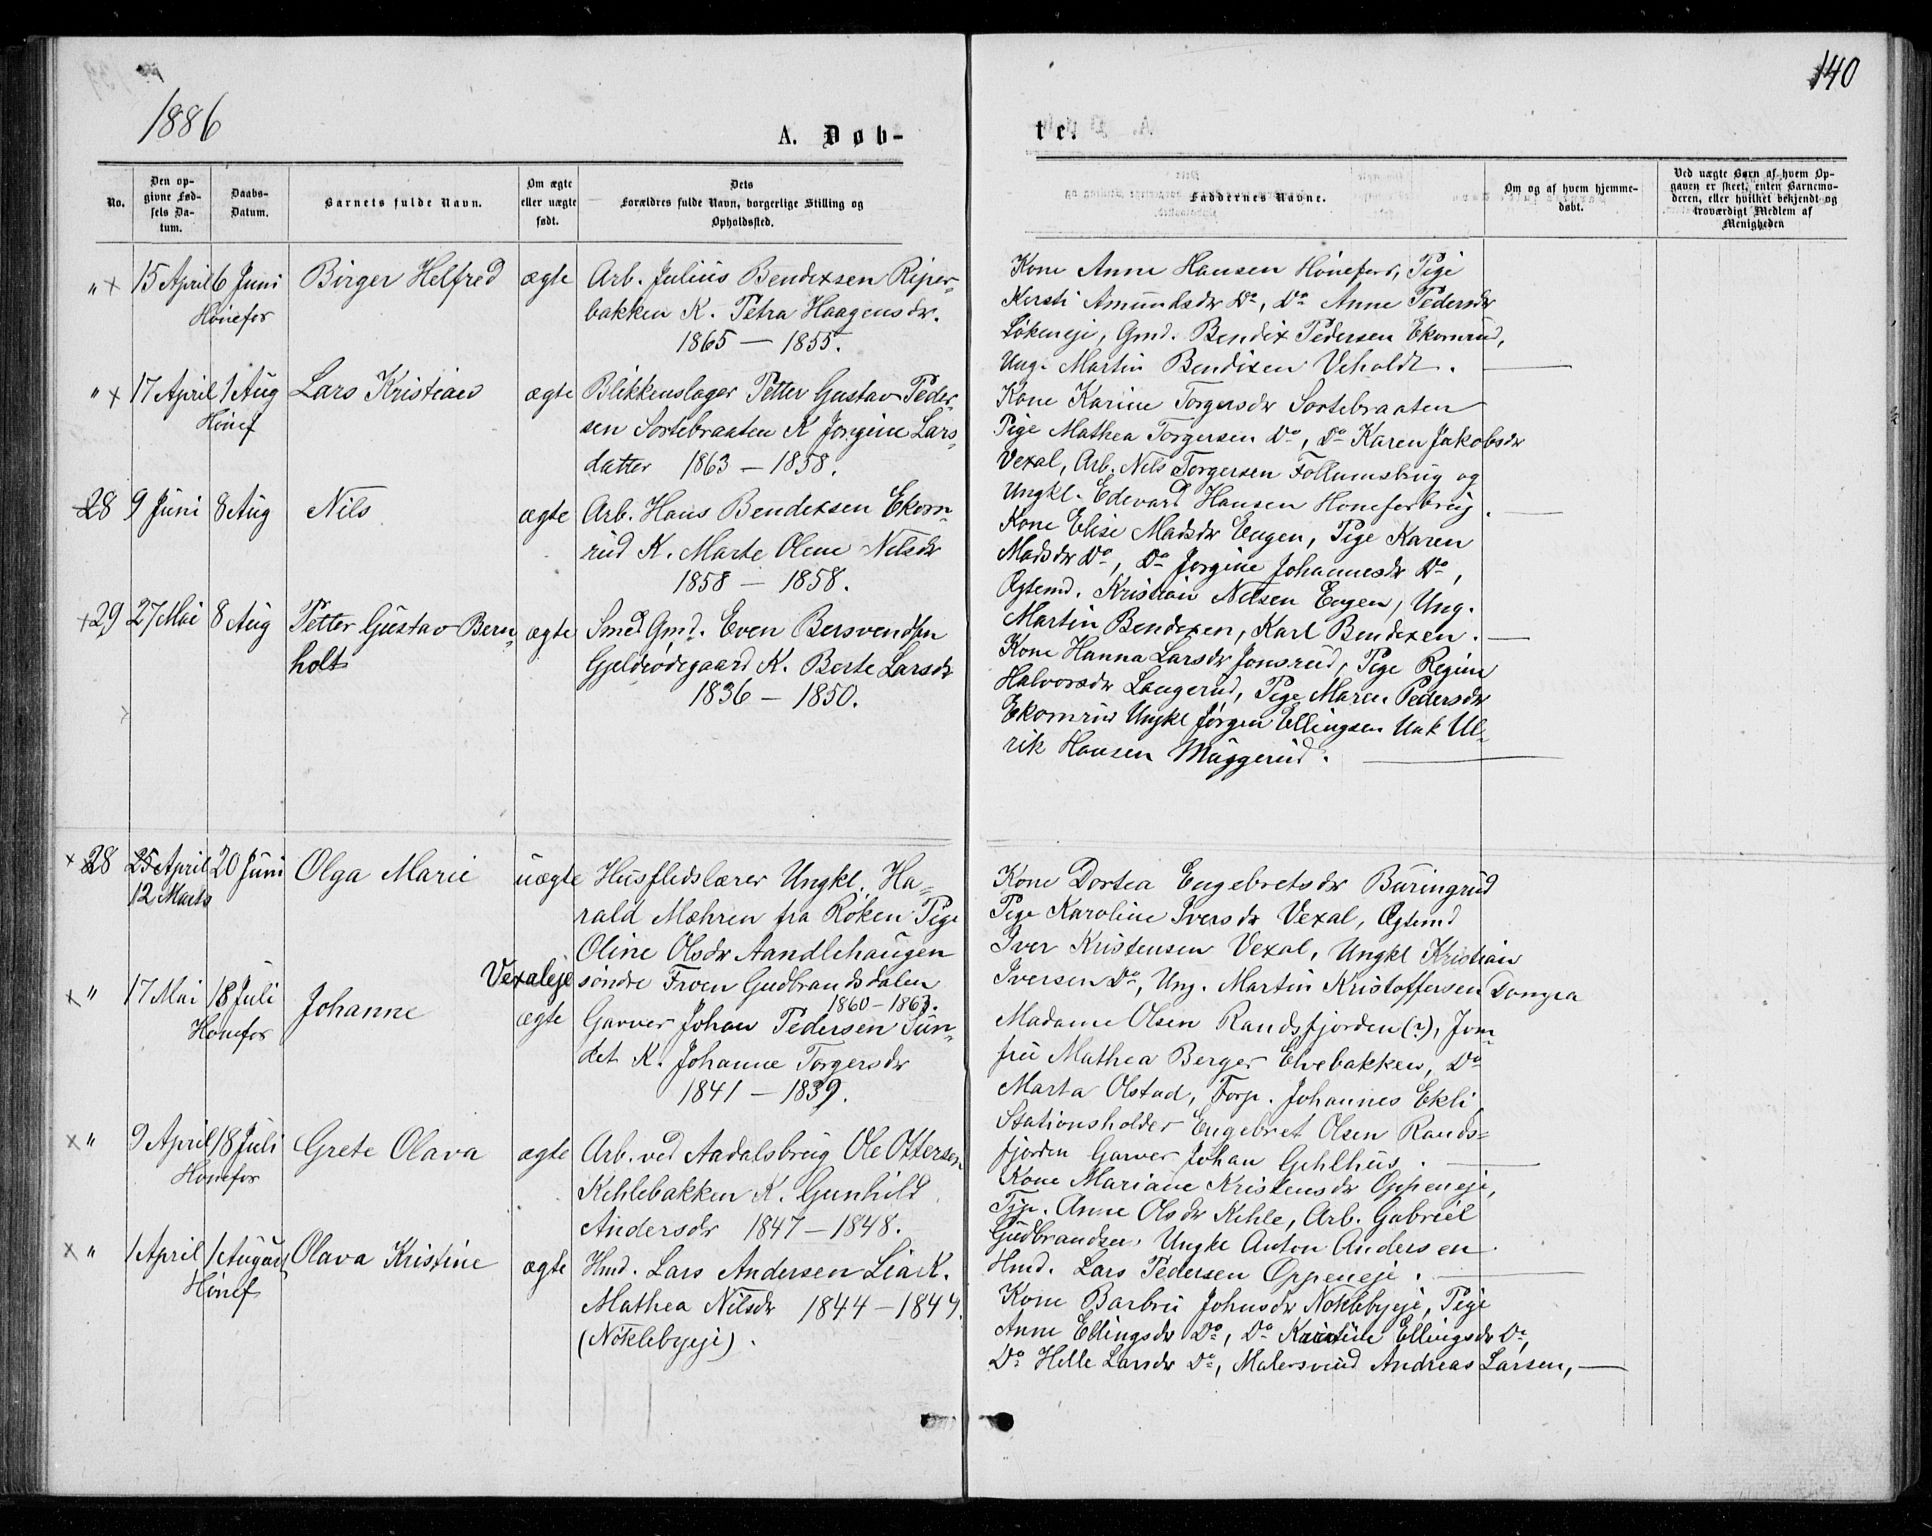 140
1886
A. Døb-
te.
No.
Den op-
givne Fød-
sels Da-
tum.
Daabs-
Datum.
Barnets fulde Navn.
Om ægte
eller uægte
født.
Dets
Forældres fulde Navn, borgerlige Stilling og
Opholdssted.
Faddernes Navne.
Om og af hvem hjemme-
døbt.
Ved uægte Barn af hvem Op-
gaven er skeet, enten Barnemo-
deren, eller hvilket bekjendt og
troværdigt Medlem af
Menigheden
" x 15 April 6 Juni Birger Helfred ægte Arb. Julius Bendixsen Riper-
Hönefos bakken K. Petra Haagensdr.
1865 — 1855.
Kone Anne Hansen Hönefoss, Pige
Kersti Amundsdr Do, Do Anne Pedersdr
Lökeneje, Gmd. Bendix Pedersen Ekornrud,
Ung. Martin Bendixen Veholdt.
" x 17 April 1 Aug Lars Kristian ægte Blikkenslager Petter Gustav Peder-
Hönef sen Sortebraaten K Jörgine Lars-
datter 1863 — 1858.
Kone Karine Torgersdr Sortebraaten
Pige Mathea Torgersen Do, Do Karen Jakobsdr
Vexal, Arb. Nils Torgersen Follumsbrug og
Ungkl. Edevard Hansen Honeforbrug.
28 9 Juni 8 Aug Nils ægte Arb. Hans Bendixsen Ekorn-
rud K. Marte Olene Nilsdr
1858 — 1858.
Kone Elise Madsdr Engen, Pige Karen
Madsdr Do, Do Jorgine Johannesdr Do,
Ogtemd. Kristian Nilsen Engen, Ung.
Martin Bendixen, Karl Bendixen.
x 29 27 Mai 8 Aug Petter Gustav Bern- ægte Smed Gmd. Even Bersvendsen
holt Gjeldödegaard K. Berte Larsdr
1836 — 1850.
Kone Hanna Larsdr Jonsrud, Pige Regine
Halvorsdr Langerud, Pige Maren Pedersdr
Ekornrud Ungkl Jörgen Ellingsen Unk Ul-
rik Hansen Muggerud.
x 28 25 April 20 Juni Olga Marie uægte Husflidslærer Ungkl. Ha-
12 Marts rald Mæhren fra Röken Pige
Oline Olsdr Aandlehaugen
Vexaleje söndre Froen Gudbrandsdalen
1860 — 1863.
Kone Dortea Engebretsdr Buringrud
Pige Karoline Iversdr Vexal, Ogtemd
Iver Kristensen Vexal, Ungkl Kristian
Iversen Do, Ung. Martin Kristoffersen
x " 17 Mai 18 Juli Johanne ægte Garver Johan Pedersen Sun-
Hönefos det K. Johanne Torgersdr
1841 — 1839.
Madame Olsen Randsfjorden (?), Jom-
fru Mathea Berger Elvebakken, Do
Marta Olstad, Forp. Johannes Ekli,
Stationsholder Engebret Olsen Rands-
fjorden Garver Johan Gehlhus.
x " 9 April 18 Juli Grete Olava ægte Arb. ved Aadalsbrug Ole Ottersen
Hönefos Kihlebakken K. Gunhild
Andersdr 1847 — 1848.
Kone Mariane Kristensdr Oppeneje,
Tjp. Anne Olsdr Kihle, Arb. Gabriel
Gudbrandsen, Ungkl Anton Andersen.
Hmd. Lars Pedersen Oppeneje.
x " 1 April 1 August Olava Kristine ægte Hmd. Lars Andersen Lia K.
Hönef Mathea Nilsdr 1844 — 1844.
(Nöklebyeje).
Kone Barbru Johnsdr Noklebyeje, Pige
Anne Ellingsdr Do, Do Kristine Ellingsdr Do,
Do Helle Larsdr Do, Malersvend Andreas Larsen,